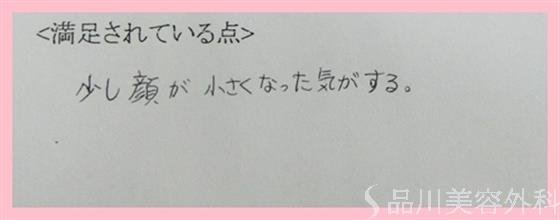 <満足されている点>
少し顔が小さくなった気がする。
品川美容外科